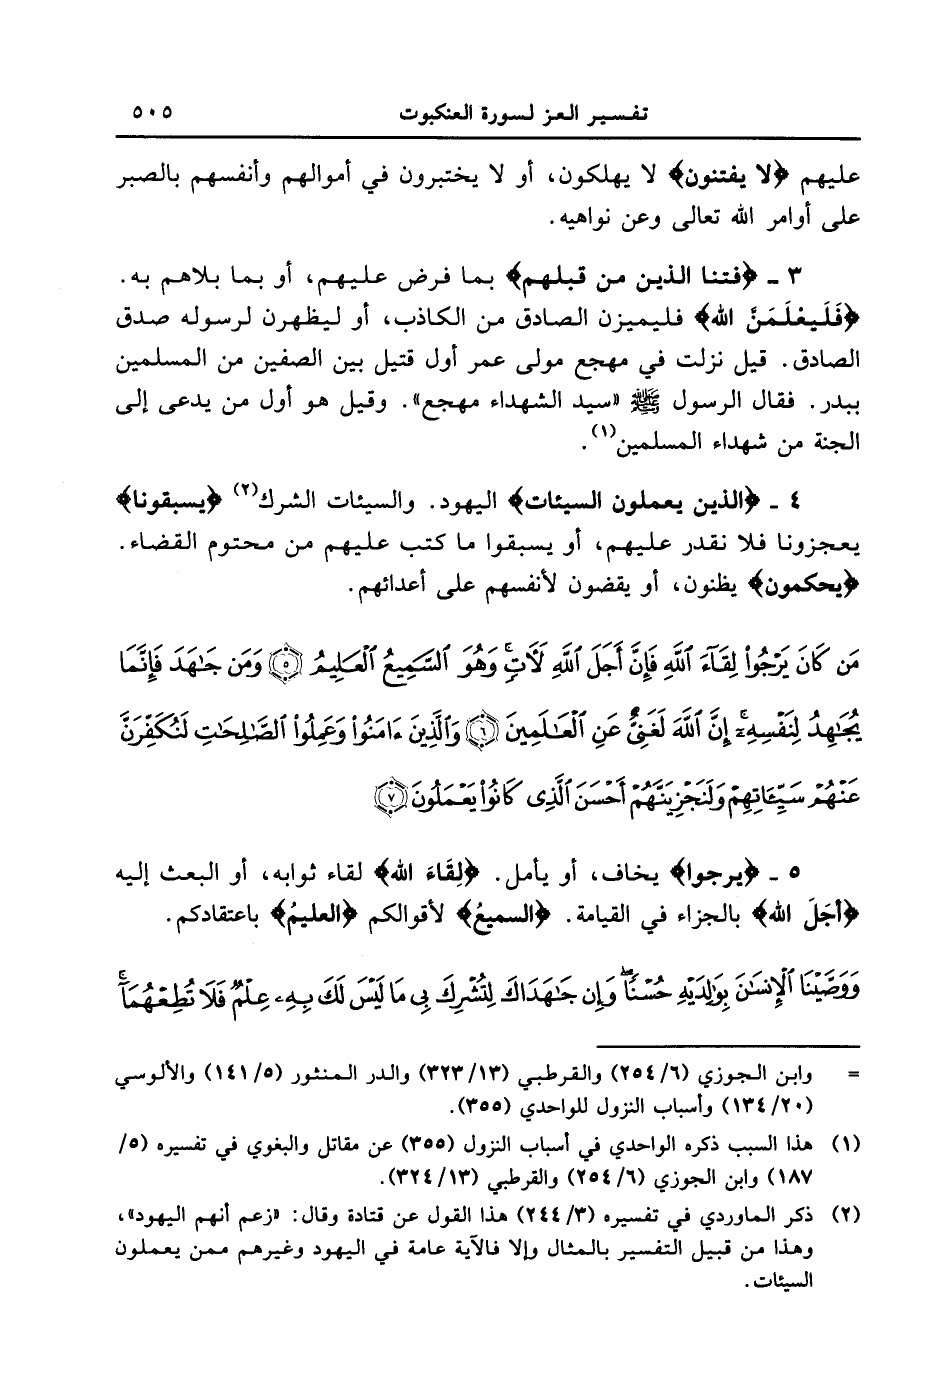 تفسير العز لسورة العنكبوت ٥٠٥
عليهم ﴿لا يفتنون﴾ لا يهلكون، أو لا يختبرون في أموالهم وأنفسهم بالصبر
على أوامر الله تعالى وعن نواهيه.
٣ ـ ﴿فتنا الذين من قبلهم﴾ بما فرض عليهم، أو بما بلاهم به.
﴿فَلَيعْلَمَنَّ الله﴾ فليميزن الصادق من الكاذب، أو ليظهرن لرسوله صدق
الصادق. قيل نزلت في مهجع مولى عمر أول قتيل بين الصفين من المسلمين
ببدر. فقال الرسول ﷺ «سيد الشهداء مهجع». وقيل هو أول من يدعى إلى
الجنة من شهداء المسلمين(١).
٤ ـ ﴿الذين يعملون السيئات﴾ اليهود. والسيئات الشرك(٢) ﴿يسبقونا﴾
يعجزونا فلا نقدر عليهم، أو يسبقوا ما كتب عليهم من محتوم القضاء.
﴿يحكمون﴾ يظنون، أو يقضون لأنفسهم على أعدائهم.
مَن كَانَ يَرْجُواْ لِقَآءَ ٱللَّهِ فَإِنَّ أَجَلَ ٱللَّهِ لَأَتٍۚ وَهُوَ ٱلسَّمِيعُ ٱلْعَلِيمُ ۝٥ وَمَن جَٰهَدَ فَإِنَّمَا
يُجَٰهِدُ لِنَفْسِهِۦٓۚ إِنَّ ٱللَّهَ لَغَنِىٌّ عَنِ ٱلْعَٰلَمِينَ ۝٦ وَٱلَّذِينَ ءَامَنُواْ وَعَمِلُواْ ٱلصَّٰلِحَٰتِ لَنُكَفِّرَنَّ
عَنْهُمْ سَيِّـَٔاتِهِمْ وَلَنَجْزِيَنَّهُمْ أَحْسَنَ ٱلَّذِى كَانُواْ يَعْمَلُونَ ۝٧
٥ ـ ﴿يرجوا﴾ يخاف، أو يأمل. ﴿لِقَاءَ الله﴾ لقاء ثوابه، أو البعث إليه
﴿أجَلَ الله﴾ بالجزاء في القيامة. ﴿السميعُ﴾ لأقوالكم ﴿العليمُ﴾ باعتقادكم.
وَوَصَّيْنَا ٱلْإِنسَٰنَ بِوَٰلِدَيْهِ حُسْنًاۖ وَإِن جَٰهَدَاكَ لِتُشْرِكَ بِى مَا لَيْسَ لَكَ بِهِۦ عِلْمٌ فَلَا تُطِعْهُمَآۚ
= وابن الجوزي (٢٥٤/٦) والقرطبي (٣٢٣/١٣) والدر المنثور (١٤١/٥) والألوسي
(١٣٤/٢٠) وأسباب النزول للواحدي (٣٥٥).
(١) هذا السبب ذكره الواحدي في أسباب النزول (٣٥٥) عن مقاتل والبغوي في تفسيره (٥/
١٨٧) وابن الجوزي (٢٥٤/٦) والقرطبي (٣٢٤/١٣).
(٢) ذكر الماوردي في تفسيره (٢٤٤/٣) هذا القول عن قتادة وقال: «زعم أنهم اليهود»،
وهذا من قبيل التفسير بالمثال وإلا فالآية عامة في اليهود وغيرهم ممن يعملون
السيئات.